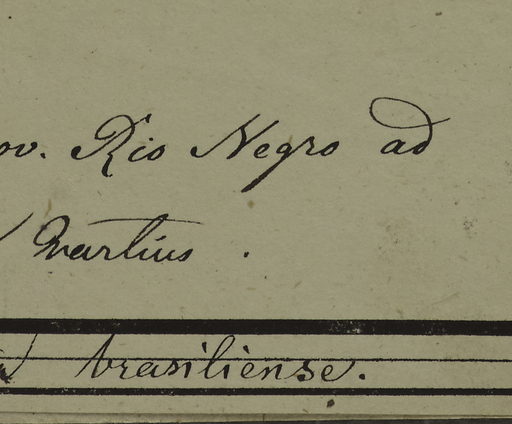 ov. Rio Negro ad
Martius.
brasiliense.